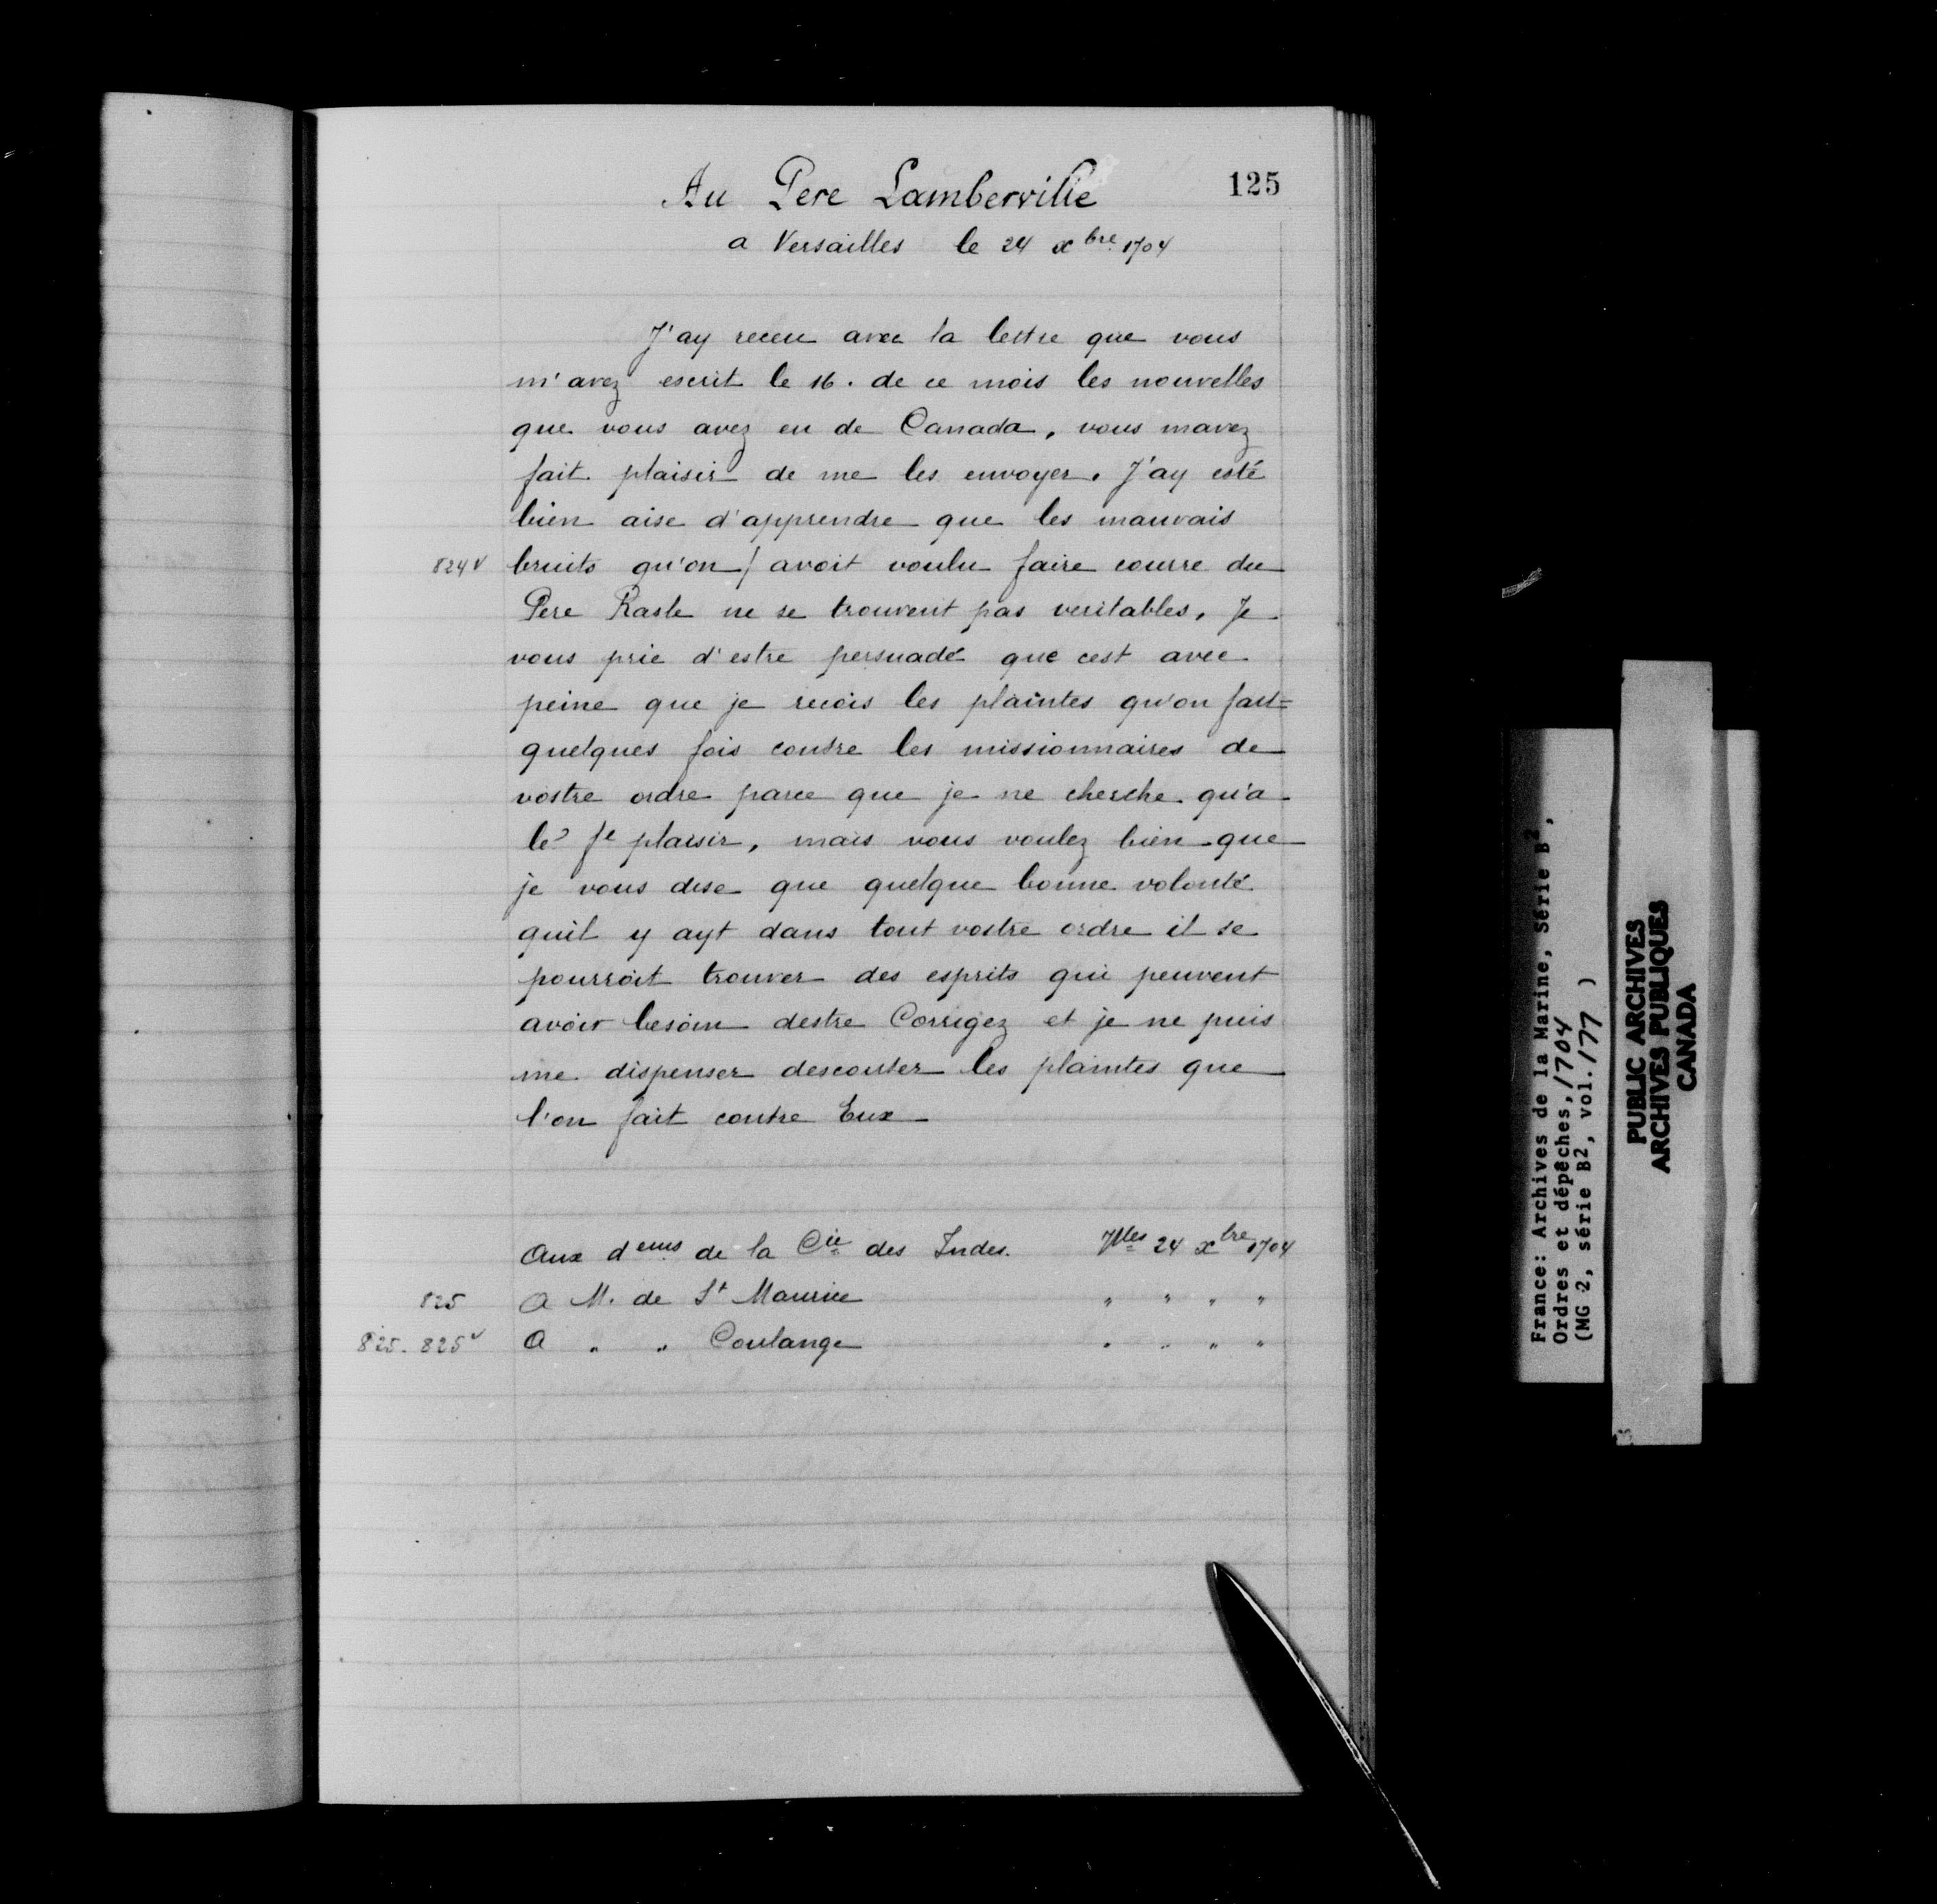 125
Au Pere Lamberville
a Versailles le 24 xbre 1704
J'ay receu avec la lettre que vous
m'avez escrit le 16. de ce mois les nouvelles
que vous avez eu de Canada, vous mavez
fait plaisir de me les envoyer. J'ay esté
bien aise d'apprendre que les mauvais
824v bruits qu'on / avoit voulu faire courre du
Pere Rasle ne se trouvent pas veritables. Je
vous prie d'estre persuadé que cest avec
peine que je recois les plaintes qu'on fait
quelques fois contre les missionnaires de
vostre ordre parce que je ne cherche qu'a
le? fe plaisir, mais vous voulez bien que
je vous dise que quelque bonne volonté
quil y ayt dans tout vostre ordre il se
pourroit trouver des esprits qui peuvent
avoir besoin destre Corrigez et je ne puis
me dispenser descouter les plaintes que
l'on fait contre Eux
Aux deurs de la Cie des Indes. Vlles 24 xbre 1704
825 A M. de St Maurice " " " "
825. 825v A " " Coulange " " " "
France: Archives de la Marine, Série B2,
Ordres et dépêches, 1704
(MG 2, série B2, vol. 177 )
PUBLIC ARCHIVES
ARCHIVES PUBLIQUES
CANADA